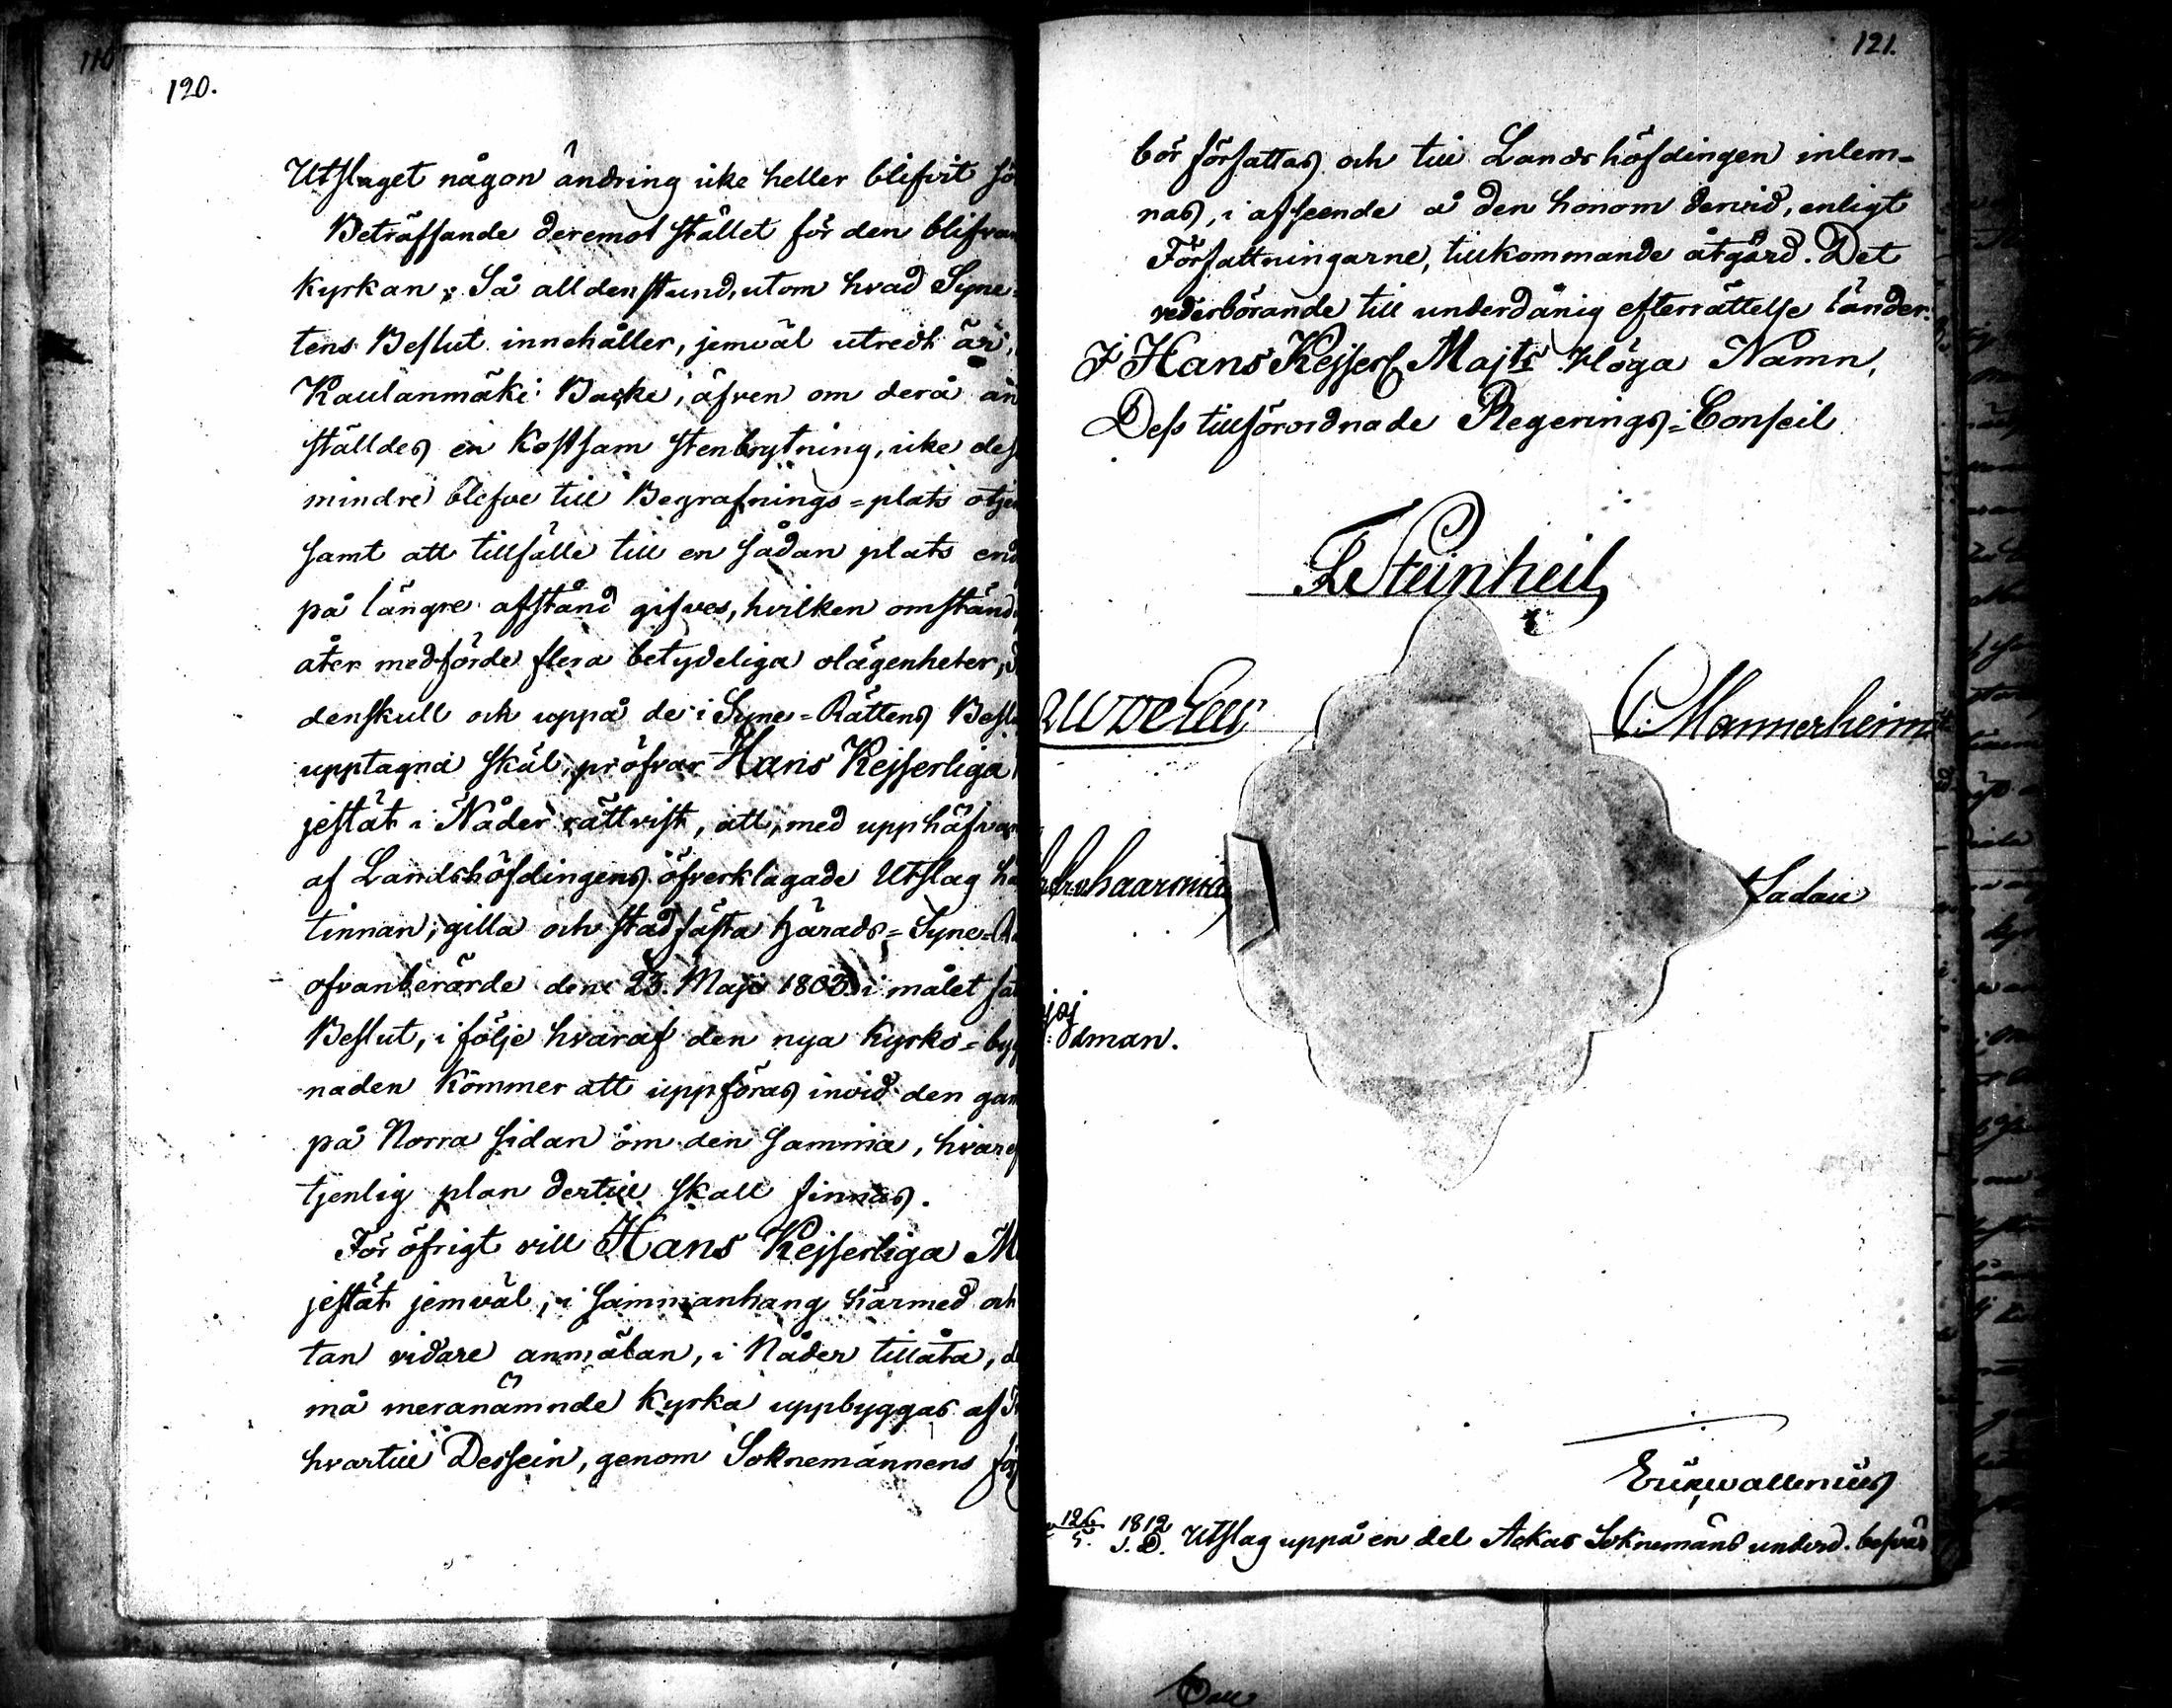 120.
Utslaget någon ändring icke heller blifvit
Beträffande deremot stället för den
Kyrkan; Så alldenstund, utom hvad Syne-
tens Beslut innehåller, jemväl utredt är,
Kaulanmäki Backe, äfven om derå
ställdes en kostsam stenbrytning, icke
mindre blefve till Begrafnings-plats
samt att tillfälle till en sådan plats
på längre afstånd gifves, hvilken
åter medförde flera betydeliga olägenheter,
denskull och uppå de i Syne-Rättens
upptagna skäl, pröfvar Hans Kejserliga
jestät i Nåder rättvist, att, med
af Landshöfdingens öfverklagade Utslag
tinnan, gilla och stadfästa Härads-Syne-
ofvanberörde den 23. Maji 1803 i målet
Beslut, i följe hvaraf den nya Kyrko-
naden kommer att uppföras invid den
på Norra sidan om den samma,
tjenlig plan dertill skall finnas.
För öfrigt vill Hans Kejserliga
jestät jemväl, i sammanhang härmed
tan vidare anmälan, i Nåder tillåta,
må meranämnde Kyrka uppbyggas af
hvartill Dessein, genom Soknemännens
121.
bör författas och till Landshöfdingen inlem-
nas, i afseende å den honom dervid, enligt
Författningarne, tillkommande åtgärd. Det
vederbörande till underdånig efterrättelse länder.
I Hans Kejserl. Majts Höga Namn,
Dess tillförordnade Regerings-Conseil
Steinheil
C: Mannerheim
Ladau
dman.
Eric Wallenius
1812
Utslag uppå en del Ackas Soknemäns underd. besvär